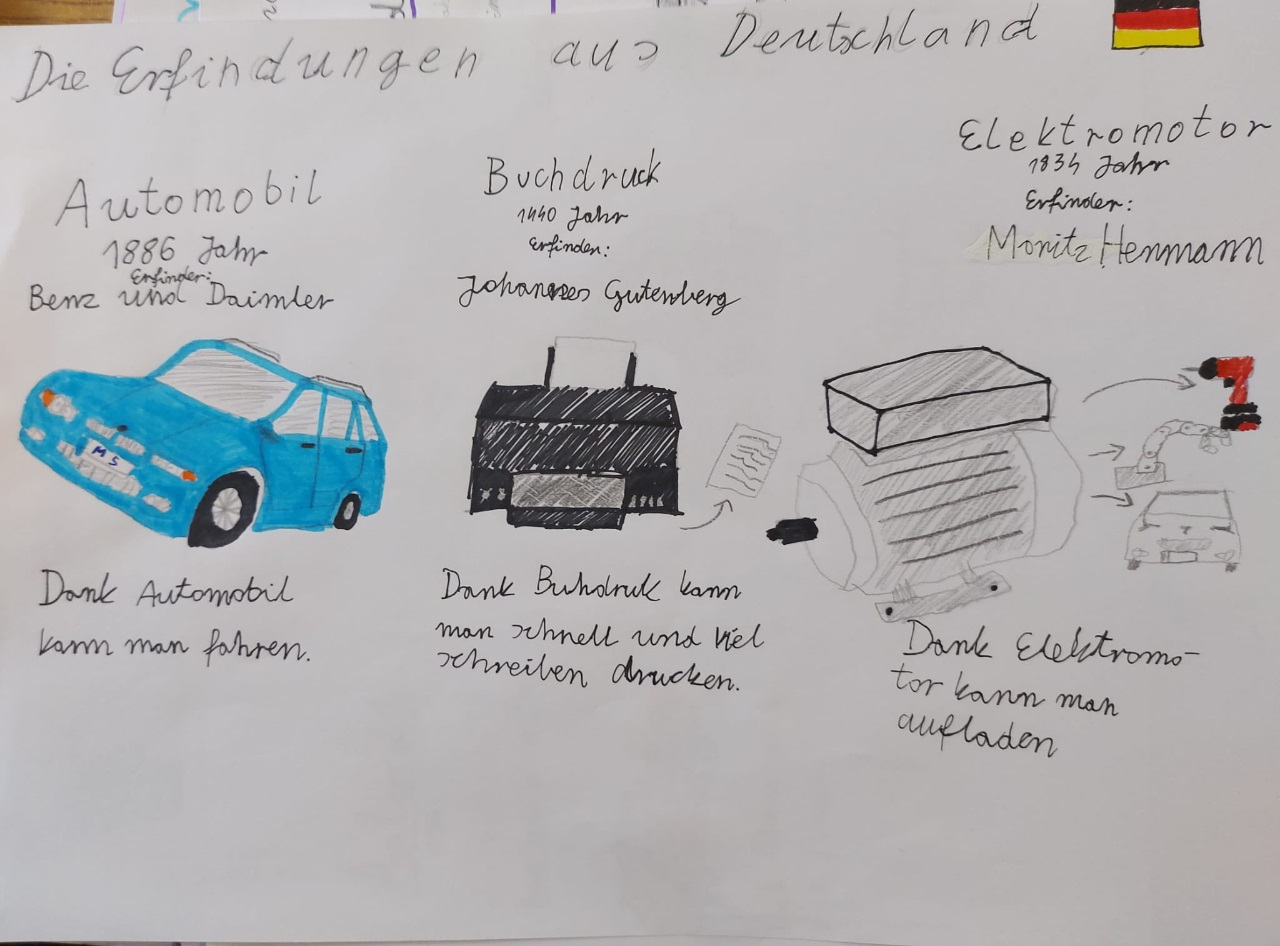 Die Erfindungen aus Deutschland
Automobil
1886 Jahr
Erfinder:
Benz und Daimler
MS
Dank Automobil
kann man fahren.
Buchdruck
1440 Jahr
Erfinder:
Johannes Gutenberg
Dank Buhdruk kann
man schnell und viel
schreiben drucken.
Elektromotor
1834 Jahr
Erfinder:
Moritz Hermann
Dank Elektromo-
tor kann man
aufladen